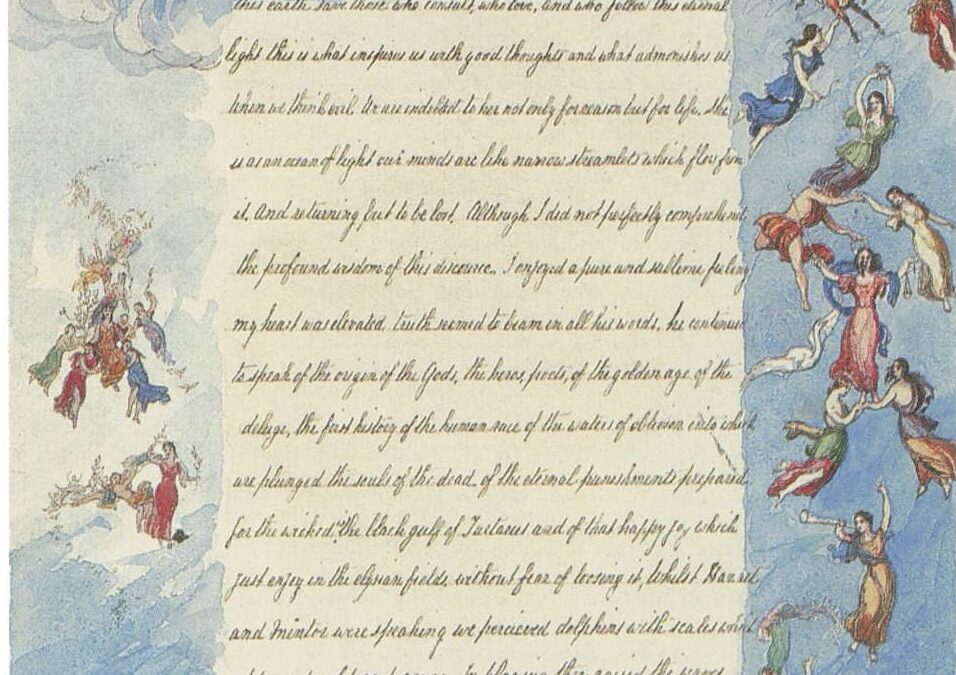 this earth save those who consult, who love, and who follow this eternal
light this is what inspires us with good thoughts and what admonishes us
when we think evil. We are indebted to her not only for reason but for life. She
is as an ocean of light our minds are like narrow streamlets which flow from
it. And returning but to be lost. Although I did not perfectly comprehend
the profound wisdom of this discource. I enjoyed a pure and sublime feeling
my heart was elevated. truth seemed to beam in all his words. he continued
to speak of the origin of the Gods, the heros, poets, of the golden age of the
deluge, the first history of the human race of the waters of oblivion into which
are plunged the souls of the dead, of the eternal punishments prepared
for the wicked, the black gulf of Tartarus and of that happy joy which
just enjoy in the elysian fields, without fear of loosing it, Whilst
and Mintor were speaking we percieved dolphins with scales which
the waves